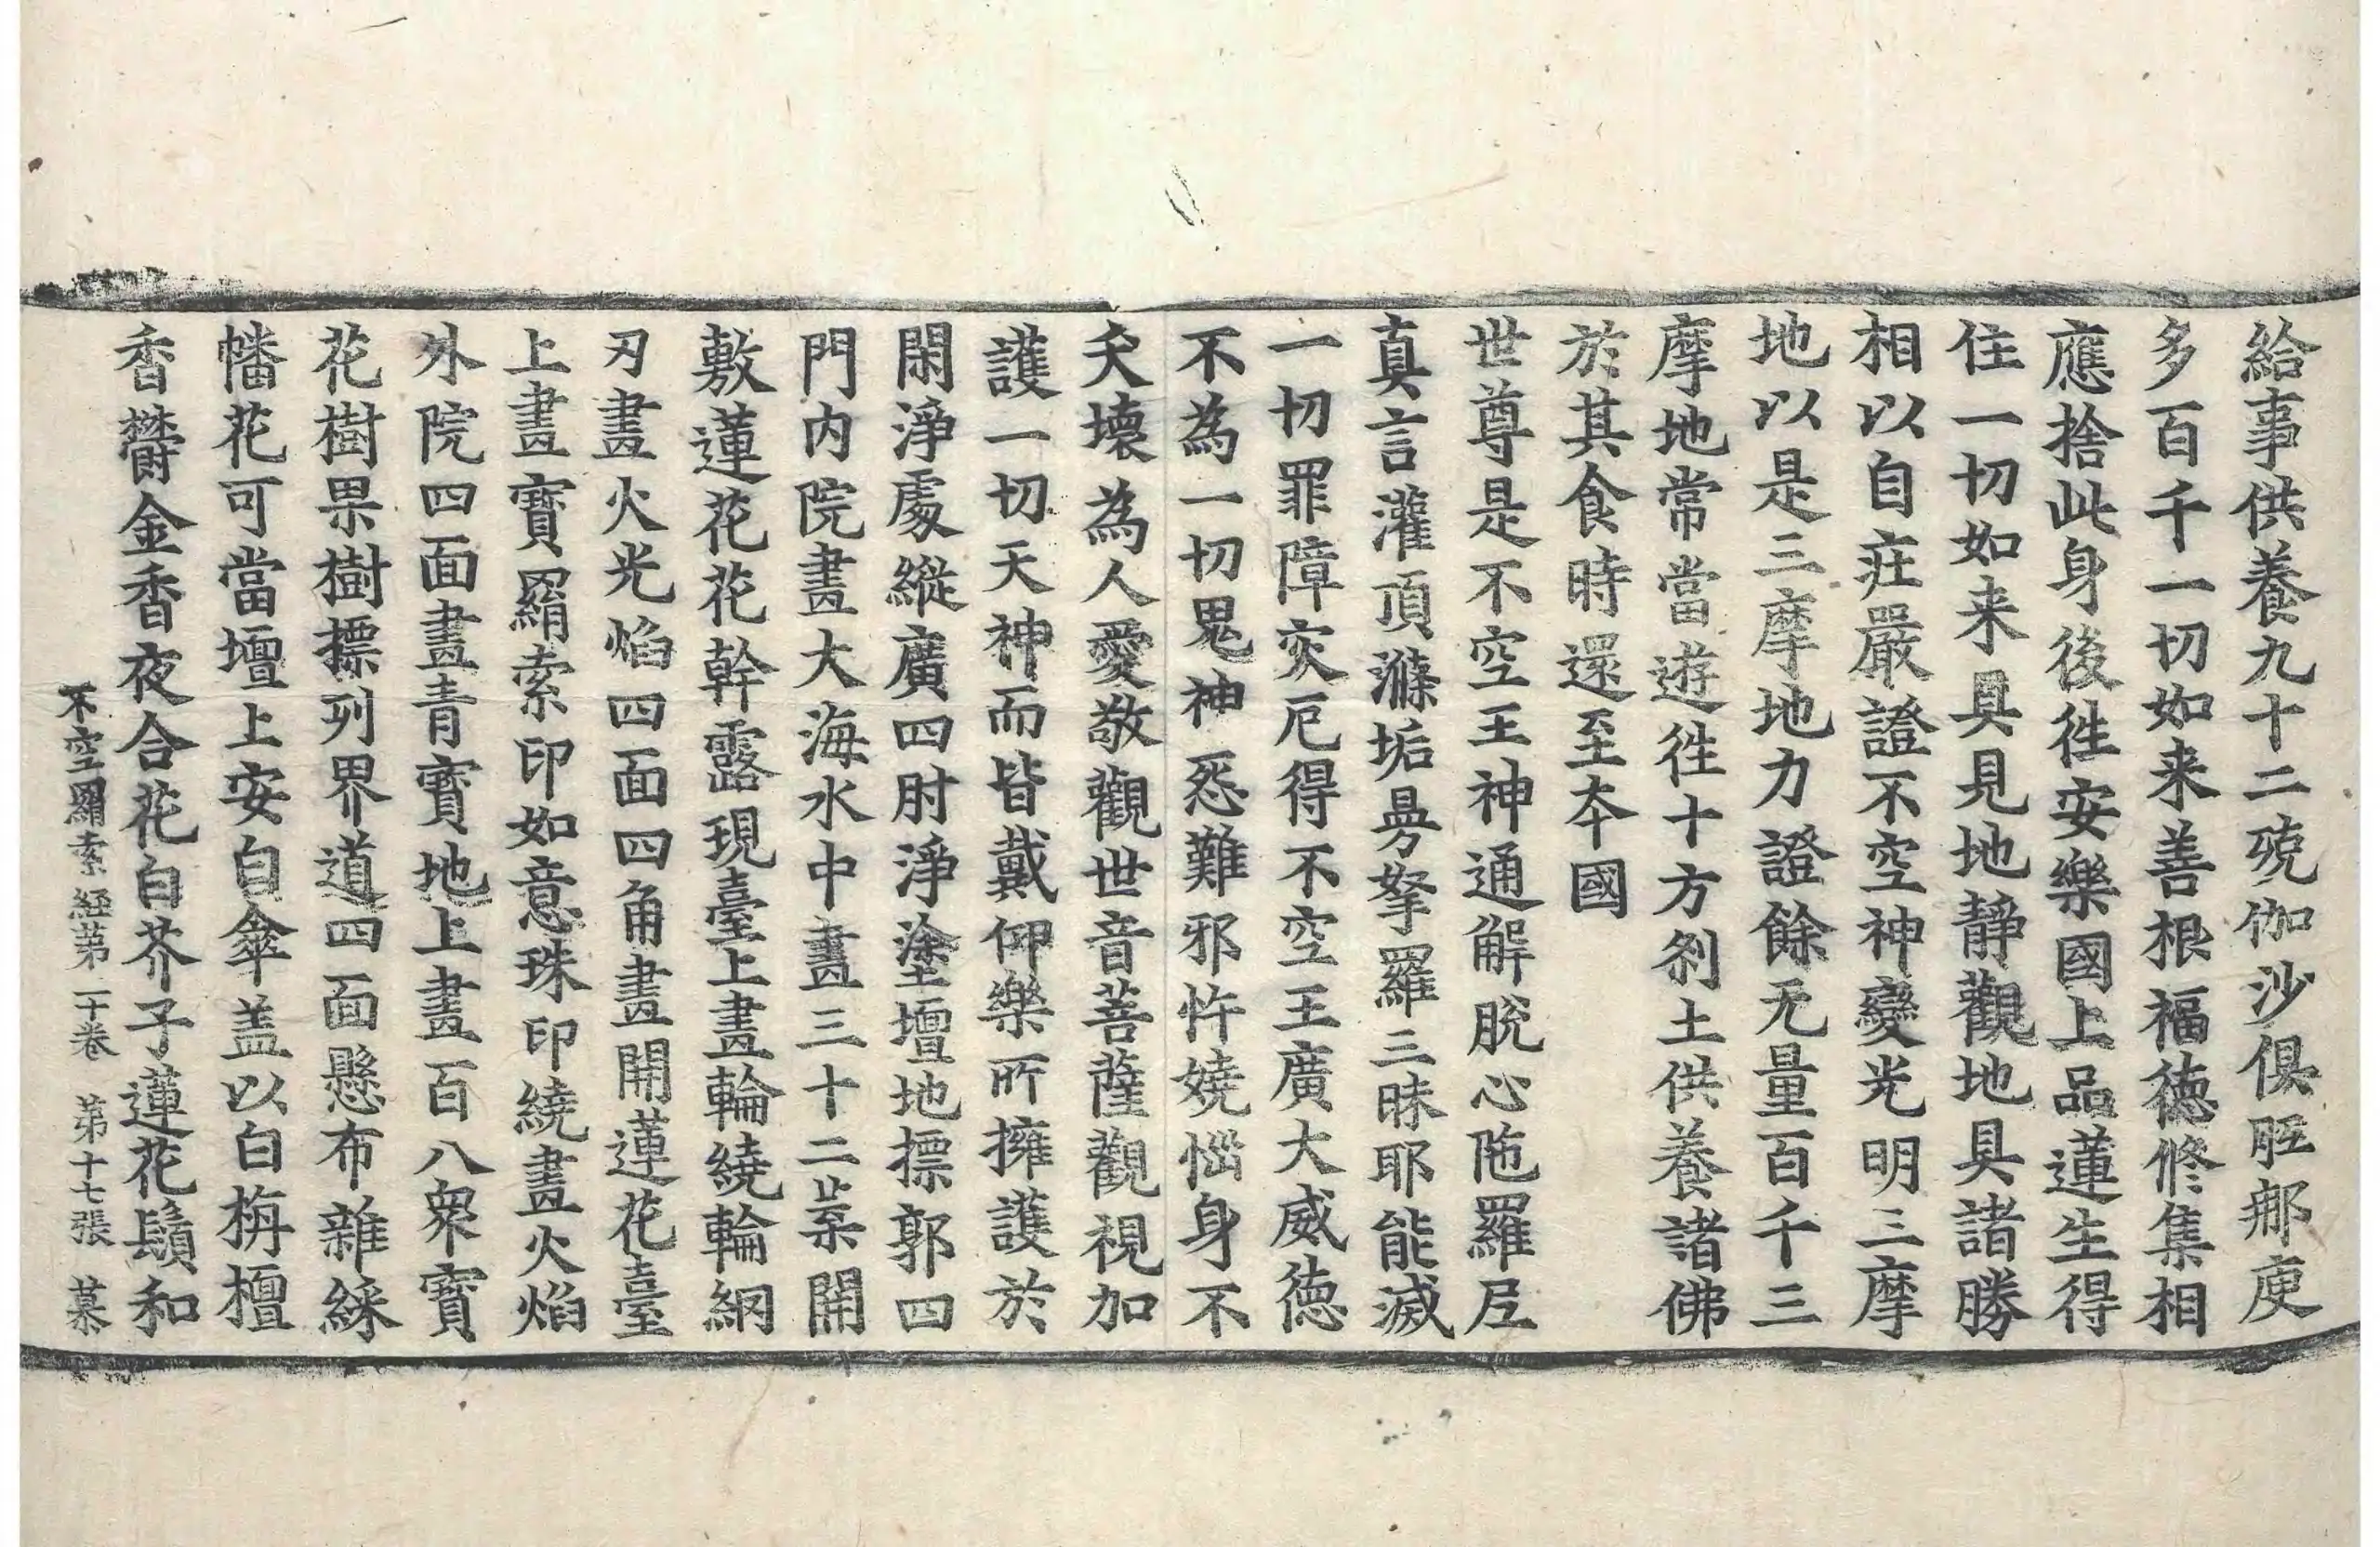 給事供養九十二殑伽沙俱胝那庾
多百千一切如来善根福徳修集相
應捨此身後徃安樂國上品蓮生得
住一切如来具見地靜觀地具諸勝
相以自荘嚴證不空神變光明三摩
地以是三摩地力證餘无量百千三
摩地常當遊徃十方刹土供養諸佛
於其食時還至夲國
世尊是不空王神通解脫心陁羅尼
真言灌頂滌垢曼拏羅三昧耶能滅
一切罪障灾厄得不空王廣大威徳
不為一切鬼神怨難邪忤嬈惱身不
夭壞為人愛敬觀世音菩薩觀視加
護一切天神而皆戴仰樂所擁護於
閑淨處縱廣四肘淨塗壇地摽郭四
門内院畫大海水中畫三十二葉開
敷蓮花花幹露現臺上畫輪繞輪網
刃畫火光焰四面四角畫開蓮花臺
上畫寶羂索印如意珠印繞畫火焰
外院四面畫青寶地上畫百八衆寶
花樹果樹摽列界道四面懸布雜綵
幡花可當壇上安白傘盖以白栴檀
香欝金香夜合花白芥子蓮花鬚和
不空羂索經苐二十卷 苐十七張 慕